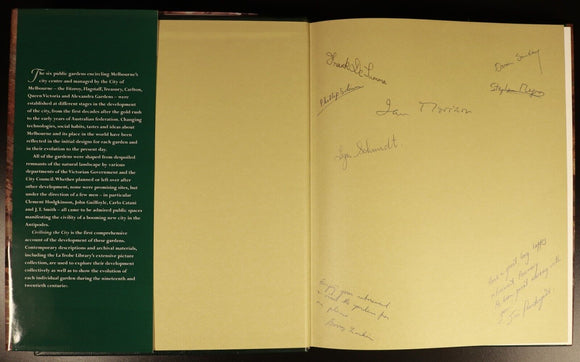 The six public gardens encircling Melbourne's
city centre and managed by the City of
Melbourne – the Fitzroy, Flagstaff, Treasury, Carlton,
Queen Victoria and Alexandra Gardens – were
established at different stages in the development of
the city, from the first decades after the gold rush
to the early years of Australian federation. Changing
technologies, social habits, tastes and ideas about
Melbourne and its place in the world have been
reflected in the initial designs for each garden and
in their evolution to the present day.
All of the gardens were shaped from despoiled
remnants of the natural landscape by various
departments of the Victorian Government and the
City Council. Whether planned or left over after
other development, none were promising sites, but
under the direction of a few men – in particular
Clement Hodgkinson, John Guilfoyle, Carlo Catani
and J. T. Smith – all came to be admired public spaces
manifesting the civility of a booming new city in the
Antipodes.
Civilising the City is the first comprehensive
account of the development of these gardens.
Contemporary descriptions and archival materials,
including the La Trobe Library's extensive picture
collection, are used to explore their development
collectively as well as to show the evolution of
each individual garden during the nineteenth and
twentieth centuries.
Frank
Stephen
Phillip
Ian Morrison
Lyn Schmidt
Enjoy your retirement
the gardens for
Barry
great boy
Jim